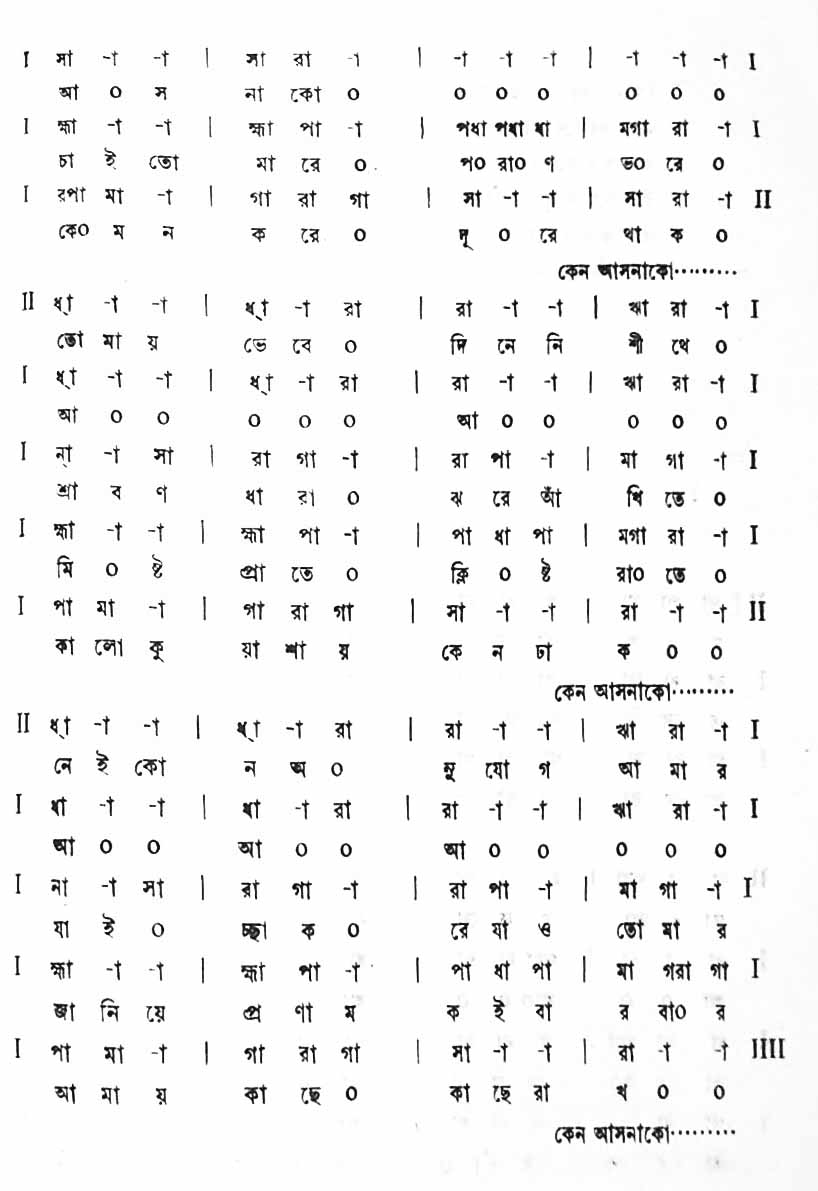 I সা -া -া | সা রা -া | -া -া -া | -া -া -া I
আ ০ স না কো ০ ০ ০ ০ ০ ০ ০
I হ্মা -া -া | হ্মা পা -া | পধা পধা ধা | মগা রা -া I
চা ই তো মা রে ০ প০ রা০ ণ ভ০ রে ০
I রপা মা -া | গা রা গা | সা -া -া | সা রা -া II
কে০ ম ন ক রে ০ দূ ০ রে থা ক ০
কেন আসনাকো·········
II ধ্া -া -া | ধ্া -া রা | রা -া -া | ঋা রা -া I
তো মা য় ভে বে ০ দি নে নি শী থে ০
I ধ্া -া -া | ধ্া -া রা | রা -া -া | ঋা রা -া I
আ ০ ০ ০ ০ ০ আ ০ ০ ০ ০ ০
I ন্া -া সা | রা গা -া | রা পা -া | মা গা -া I
শ্রা ব ণ ধা রা ০ ঝ রে আঁ খি তে ০
I হ্মা -া -া | হ্মা পা -া | পা ধা পা | মগা রা -া I
মি ০ ষ্ট প্রা তে ০ ক্লি ০ ষ্ট রা০ তে ০
I পা মা -া | গা রা গা | সা -া -া | রা -া -া II
কা লো কু য়া শা য় কে ন ঢা ক ০ ০
কেন আসনাকো·········
II ধ্া -া -া | ধ্া -া রা | রা -া -া | ঋা রা -া I
নে ই কো ন অ ০ নু যো গ আ মা র
I ধা -া -া | ধা -া রা | রা -া -া | ঋা রা -া I
আ ০ ০ আ ০ ০ আ ০ ০ ০ ০ ০
I না -া সা | রা গা -া | রা পা -া | মা গা -া I
যা ই ০ চ্ছা ক ০ রে যা ও তো মা র
I হ্মা -া -া | হ্মা পা -া | পা ধা পা | মা গরা গা I
জা নি য়ে প্র ণা ম ক ই বা র বা০ র
I পা মা -া | গা রা গা | সা -া -া | রা -া -া IIII
আ মা য় কা ছে ০ কা ছে রা খ ০ ০
কেন আসনাকো·········